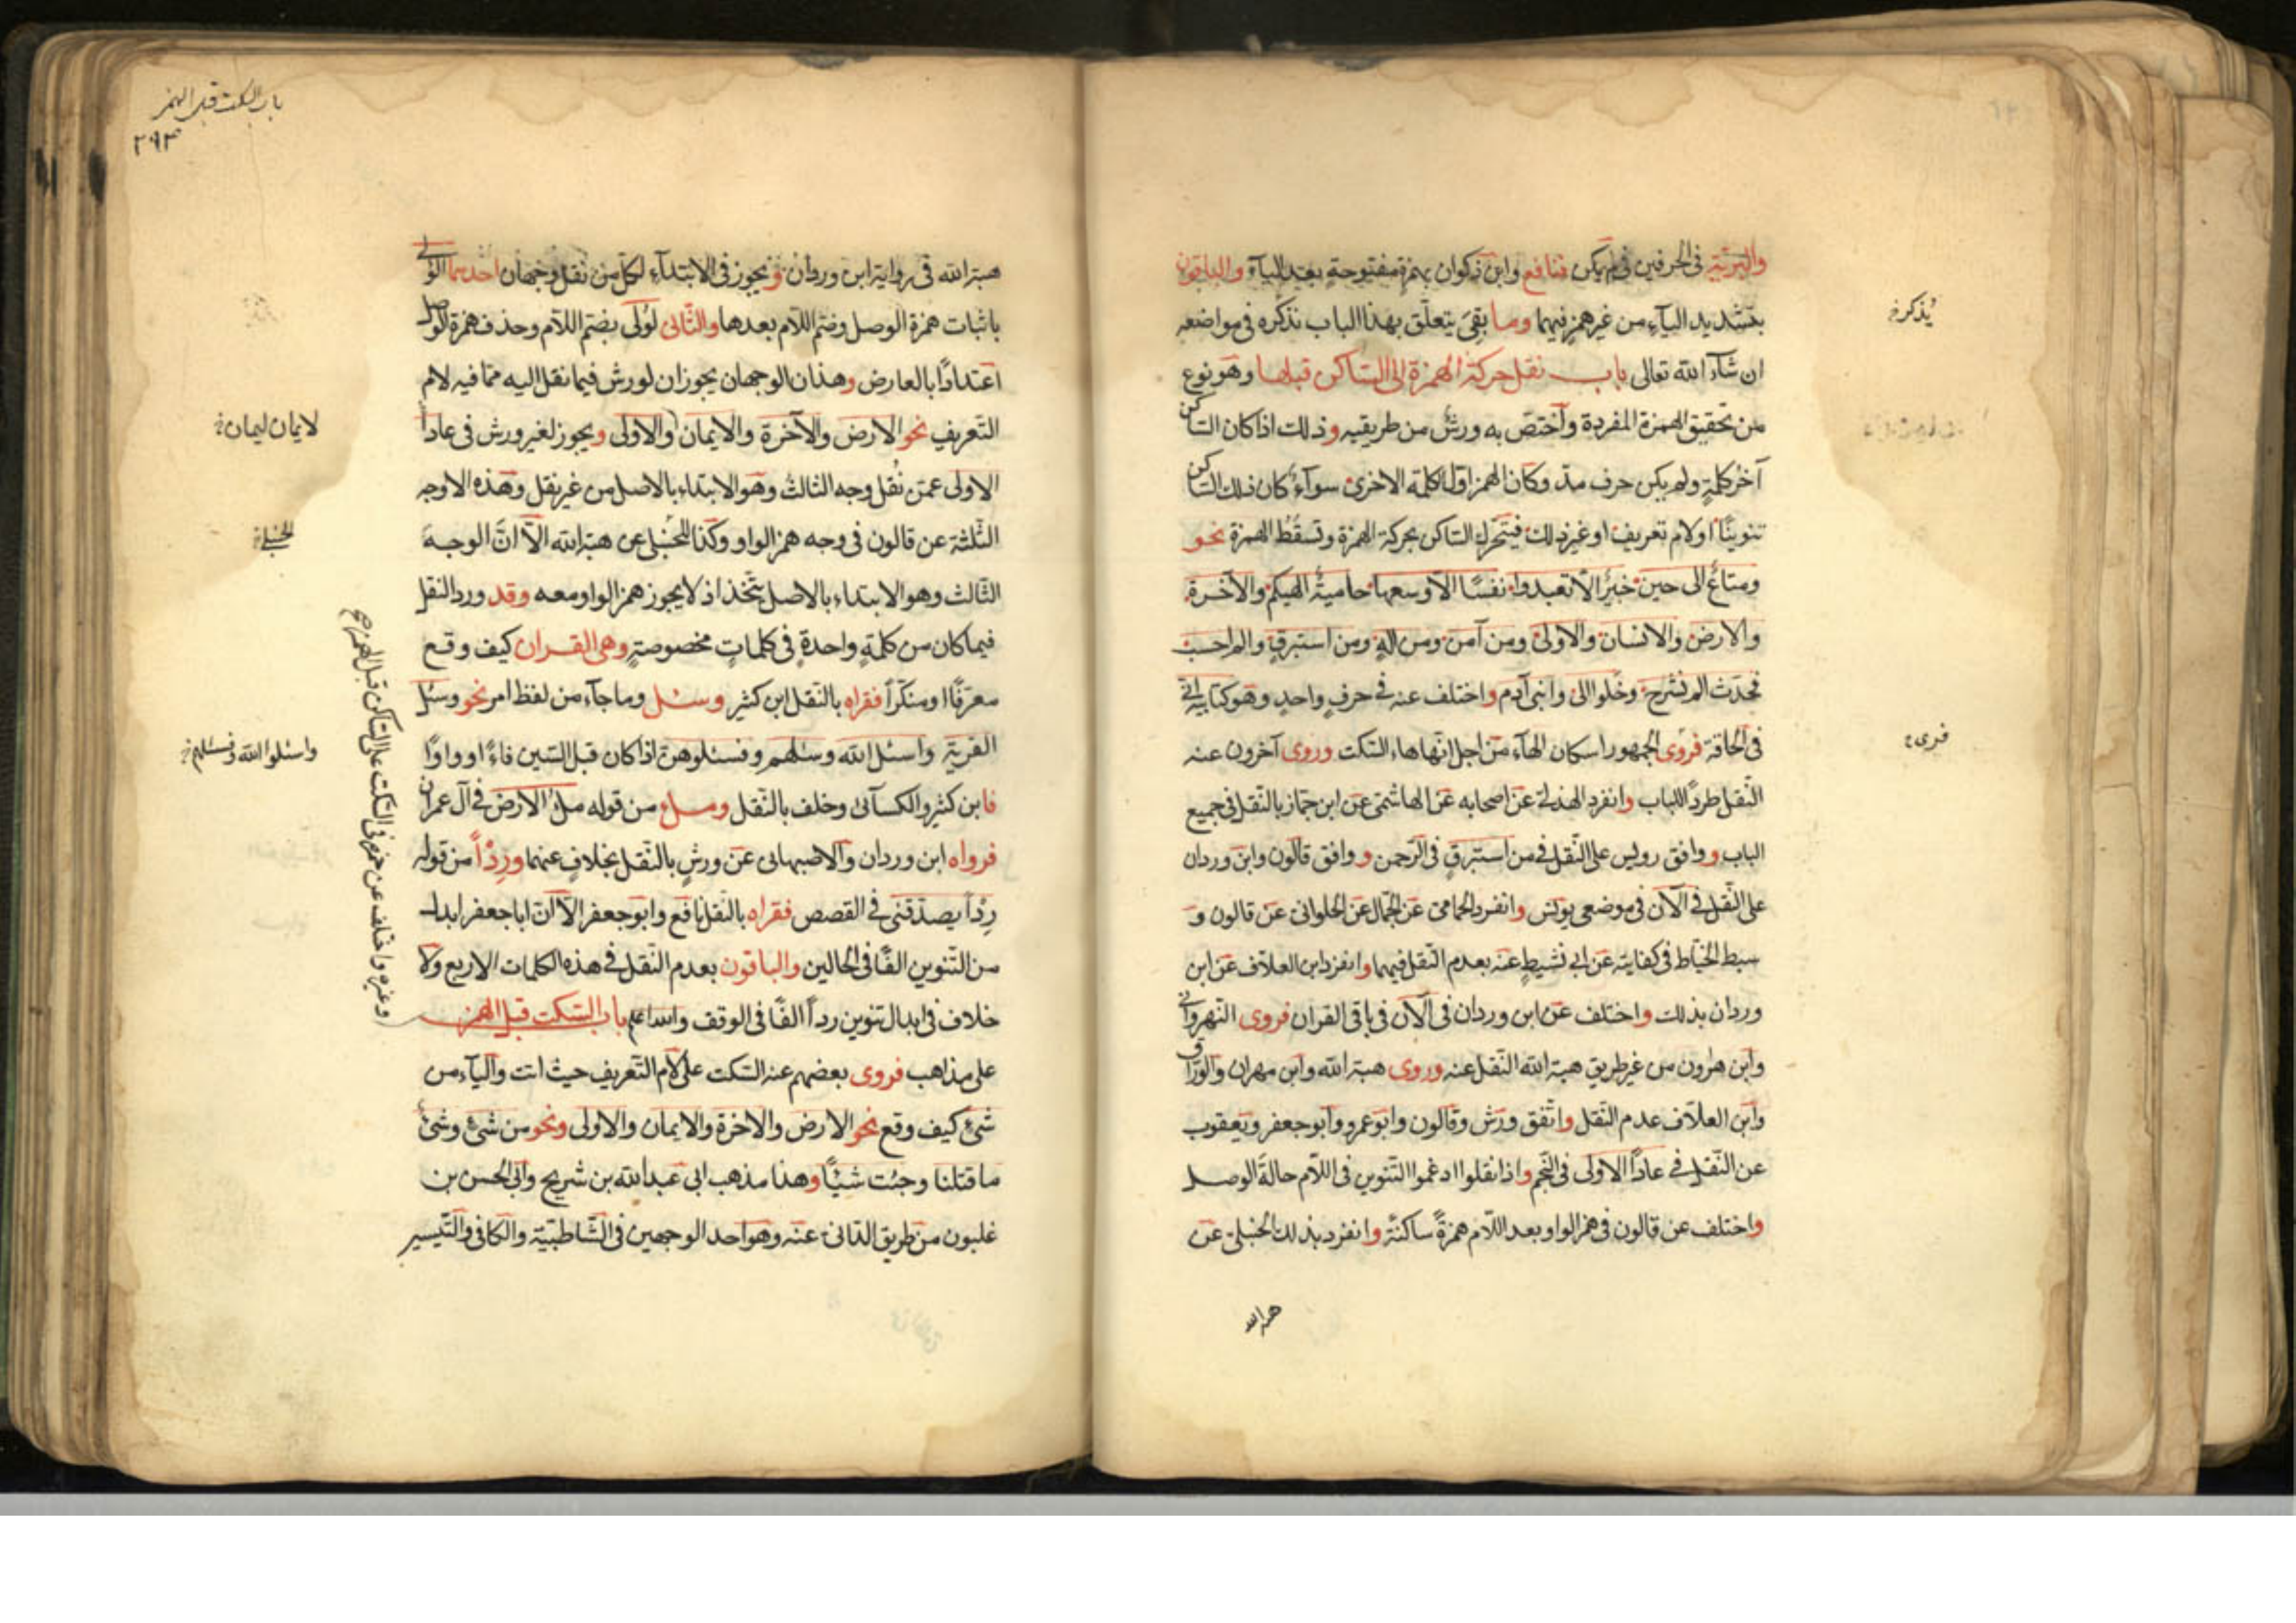 والبرية في الحرفين في لم يكن فنافع وابن ذكوان بهمزة مفتوحة بعد الياء والباقون
بتشديد الياء من غير همز فيهما وما بقي يتعلق بهذا الباب نذكره في مواضعه
يذكر
ان شاء الله تعالى باب نقل حركة الهمزة الى الساكن قبلها وهو نوع
من تحقيق الهمزة المفردة واختص به ورش من طريقيه وذلك اذا كان الساكن
آخر كلمة ولم يكن حرف مد وكان الهمز اول الكلمة الاخرى سواء كان ذلك الساكن
تنوينا او لام تعريف او غير ذلك فيتحرك الساكن بحركة الهمزة وتسقط الهمزة نحو
ومتاع الى حين خبير الا تعبدوا نفسا الا وسعها حامية الهيكم والآخرة
والارض والانسان والاولى ومن آمن ومن اله ومن استبرق والم احسب
فحدث الم نشرح وخلوا الى وابني آدم واختلف عنه في حرف واحد وهو كتابيه اني
في الحاقة فروى الجمهور اسكان الهاء من اجل انها هاء السكت وروى آخرون عنه
فرى
النقل طردا للباب وانفرد الهذلي عن اصحابه عن الهاشمي عن ابن جماز بالنقل في جميع
الباب ووافق رويس على النقل في من استبرق في الرحمن ووافق قالون وابن وردان
على النقل في الآن في موضعي يونس وانفرد الحمامي عن الجمال عن الحلواني عن قالون و
سبط الخياط في كفايته عن ابي نشيط عنه بعدم النقل فيهما وانفرد ابن العلاف عن ابن
وردان بذلك واختلف عن ابن وردان في الآن في باقي القران فروى النهرواني
وابن هرون من غير طريق هبة الله النقل عنه وروى هبة الله وابن مهران والوراق
وابن العلاف عدم النقل واتفق ورش وقالون وابو عمرو وابو جعفر ويعقوب
عن النقل في عادا الاولى في النجم واذا نقلوا ادغموا التنوين في اللام حالة الوصل
واختلف عن قالون في همز الواو بعد اللام همزة ساكنة وانفرد بذلك الحنبلي عن
هبة الله
باب السكت قبل الهمز
٢٩٣
هبة الله في رواية ابن وردان ويجوز في الابتداء لكل من نقل وجهان احدهما الولى
باثبات همزة الوصل وضم اللام بعدها والثاني لولى بضم اللام وحذف همزة الوصل
اعتدادا بالعارض وهذان الوجهان يجوزان لورش فيما نقل اليه مما فيه لام
التعريف نحو الارض والآخرة والايمان والاولى ويجوز لغير ورش في عادا
لايمان ليمان
الاولى عمن نقل وجه الثالث وهو الابتداء بالاصل من غير نقل وهذه الاوجه
الثلثة عن قالون في وجه همز الواو وكذا للحنبلي عن هبة الله الا ان الوجه
الحنبلي
الثالث وهو الابتداء بالاصل يتخذ اذ لا يجوز همز الواو معه وقد ورد النقل
فيما كان من كلمة واحدة في كلمات مخصوصة وهى القران كيف وقع
معرفا او منكرا فقراه بالنقل ابن كثير وسئل وما جاء من لفظ امر نحو وسئل
القرية واسئل الله وسئلهم وفسئلوهن اذا كان قبل السين فاء او واوا
واسئلوا الله وفسئلهم
فابن كثير والكسائي وخلف بالنقل وملء من قوله ملء الارض في آل عمران
فرواه ابن وردان والاصبهاني عن ورش بالنقل بخلاف عنهما وردءا من قوله
ردءا يصدقني في القصص فقراه بالنقل نافع وابو جعفر الا ان ابا جعفر ابدل
من التنوين الفا في الحالين والباقون بعدم النقل في هذه الكلمات الاربع ولا
خلاف في ابدال تنوين ردءا الفا في الوقف والله اعلم باب السكت قبل الهمز
وغيره واختلف عن حمزة في السكت على الساكن قبل الهمز صح
على مذاهب فروى بعضهم عنه السكت على لام التعريف حيث اتت والياء من
شئ كيف وقع نحو الارض والاخرة والايمان والاولى ونحو من شئ وشئ
ما قتلنا وجئت شيئا وهذا مذهب ابي عبد الله بن شريح وابي الحسن بن
غلبون من طريق الداني عنه وهو احد الوجهين في الشاطبية والكافي والتيسير